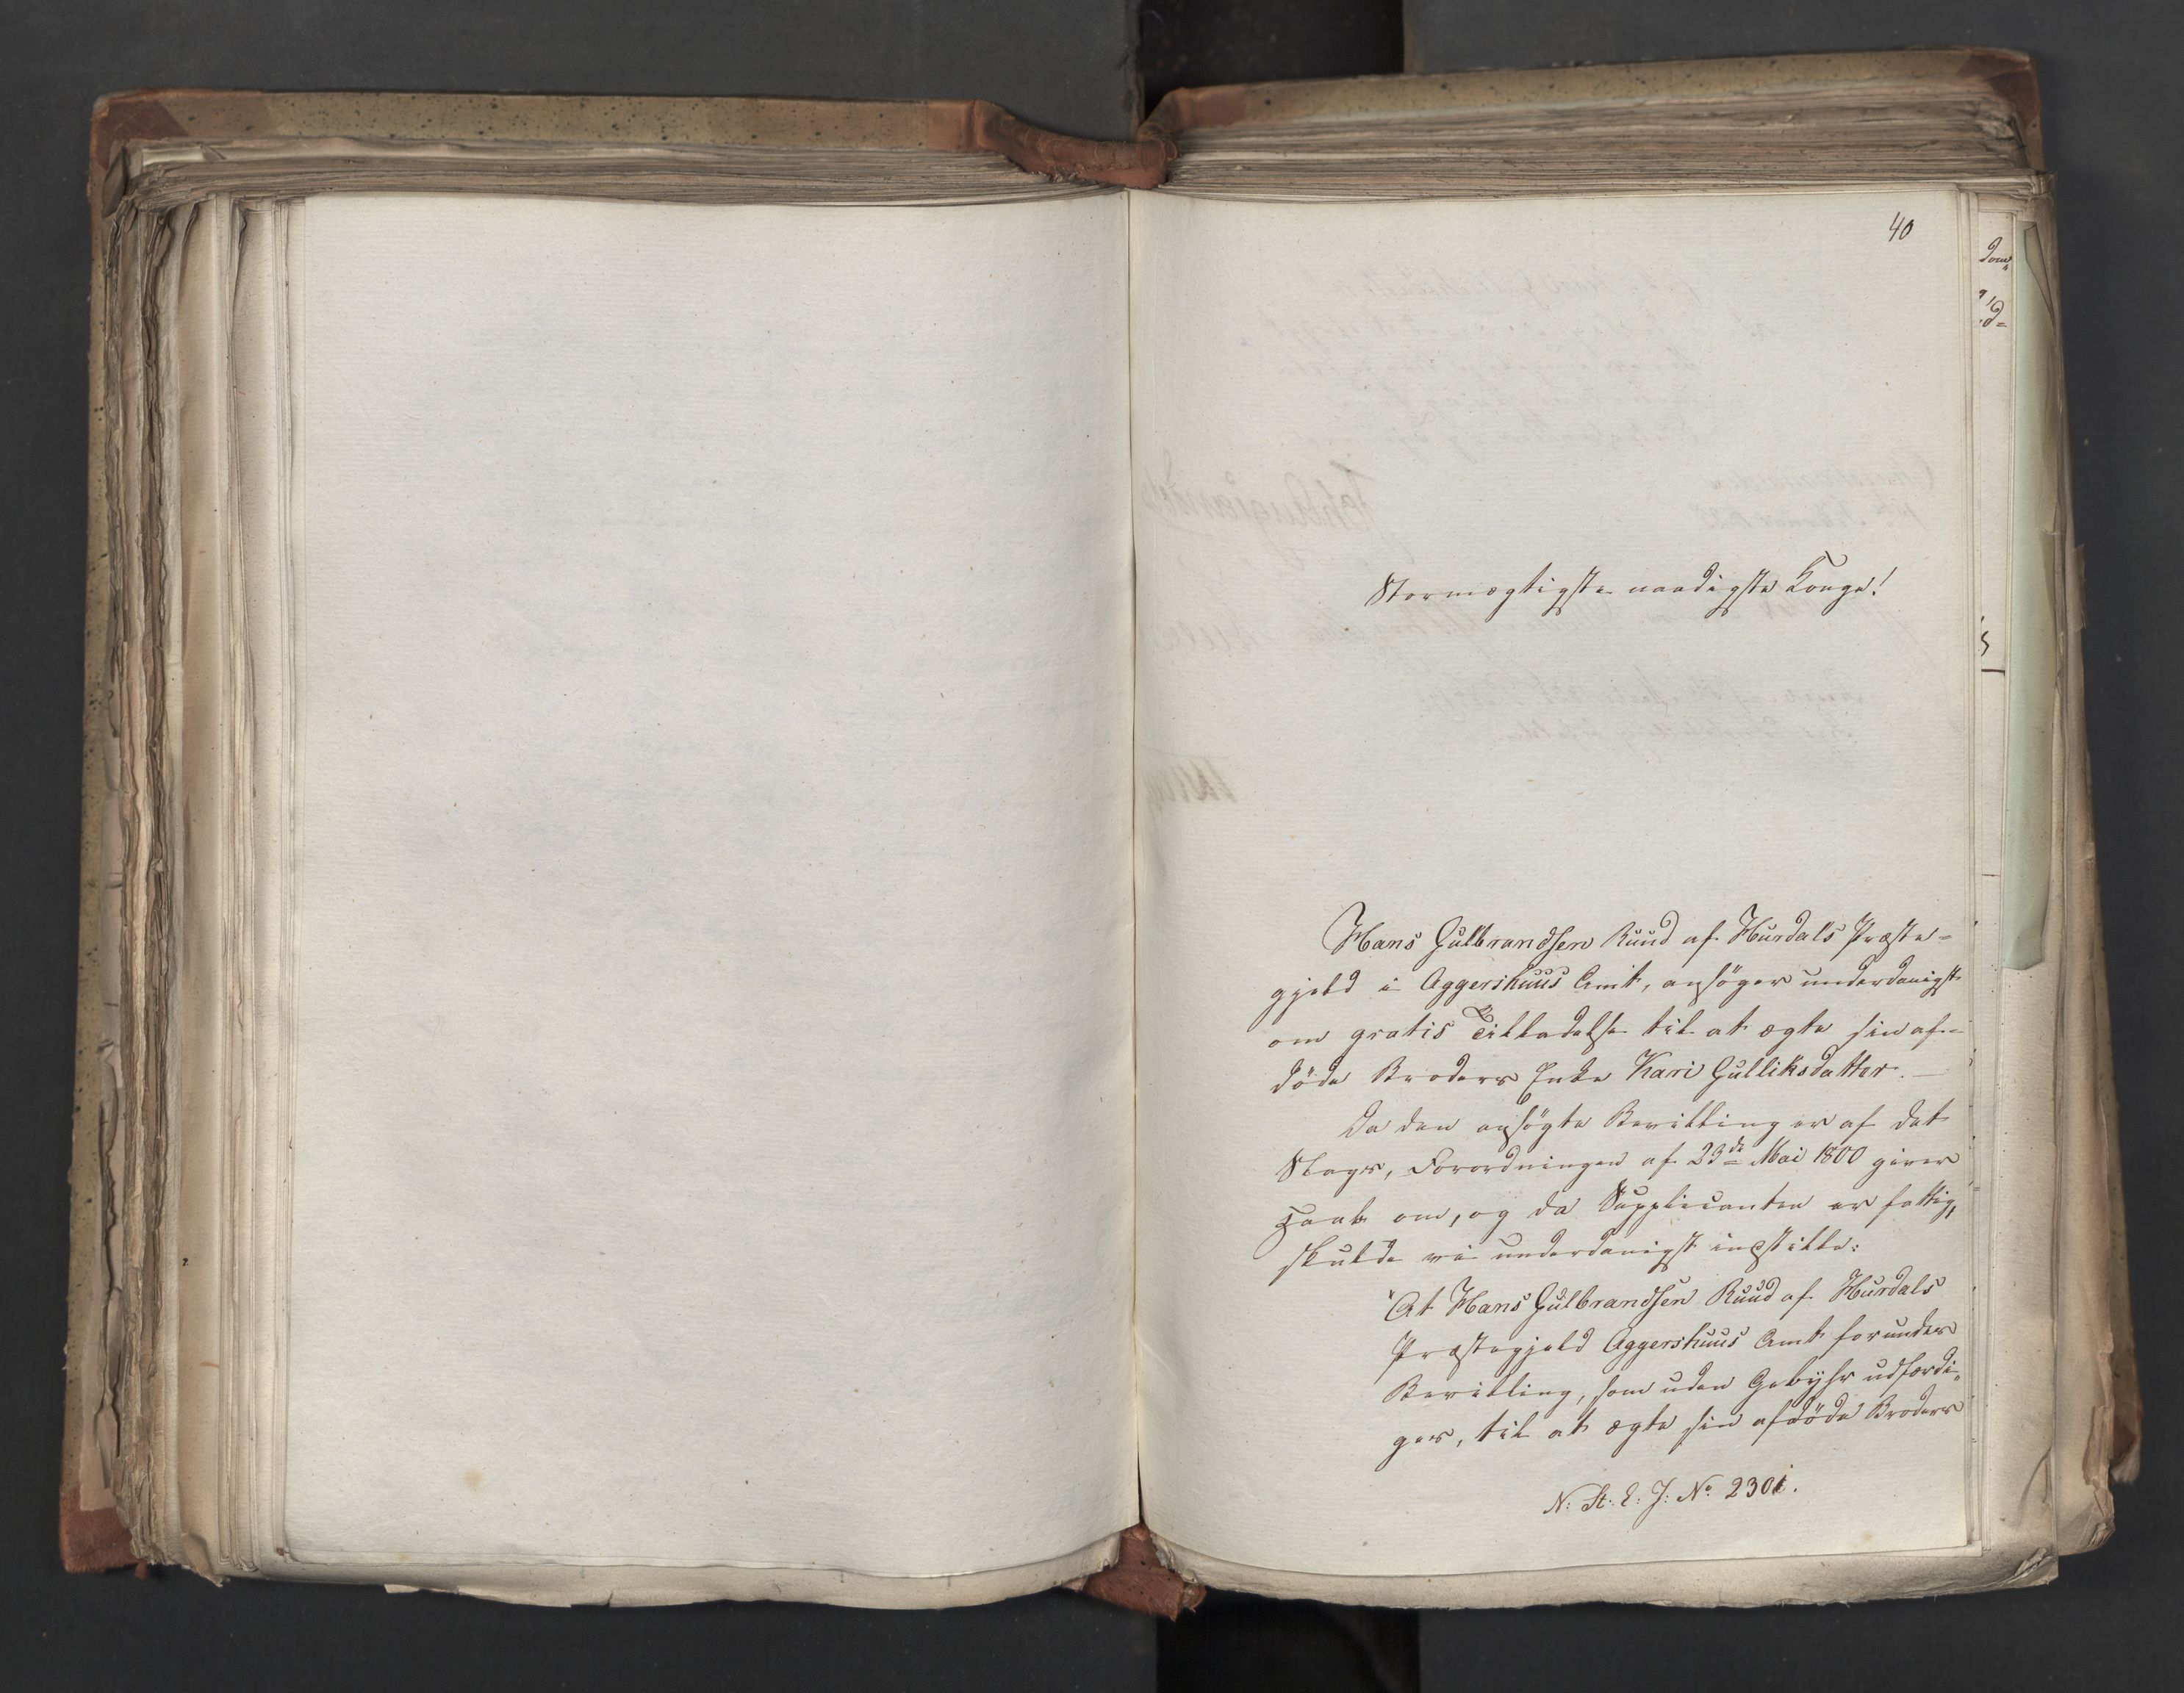 40
Stormægtigste naadigste Konge!
Hans Gulbrandsen Ruud af Hurdals Præste=
gjeld i Aggershuus Amt, ansöger underdanigst
om gratis Tilladelse til at ægte sin af=
döde Broders Enke Kari Gulliksdatter.
Da den ansögte Bevilling er af det
Slags, Forordningen af 23de Mai 1800 giver
Haab om, og da Supplicanten er fattig,
skulde vi underdanigst indstille:
"At Hans Gulbrandsen Ruud af Hurdals
Præstegjeld Aggershuus Amt forundes
Bevilling, som uden Gebyhr udfærdi=
ges, til at ægte sin afdöde Broders
N: St: E: J: No 2301.